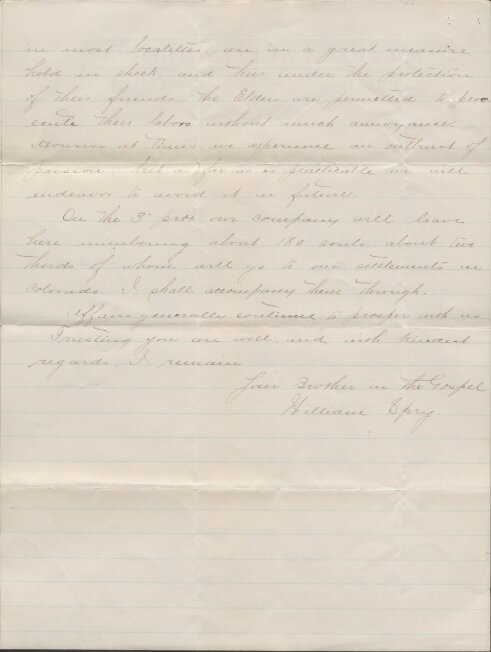 in most localities, are in a great measure
held in check, and thus under the protection
of their friends the Elders are permitted to pros
ecute their labors without much annoyance.
However at times we experience an outburst of
passion, but as far as is practicable we will
endeavor to avoid it in future.
On the 3" prox our company will leave
here numbering about 180 souls about two
thirds of whom will go to our settlements in
Colorado. I shall accompany them through.
Affairs generally continue to prosper with us.
Trusting you are well, and with kindest
regards, I remain
Your Brother in the Gospel
William